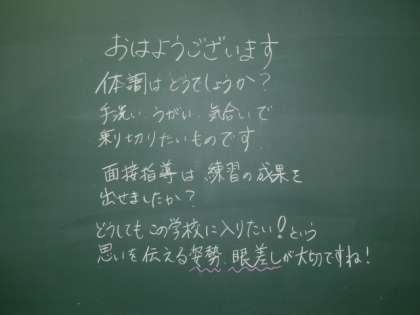 おはようございます
体調はどうでしょうか？
手洗い、うがい、気合いで
乗り切りたいものです。
面接指導は、練習の成果を
出せましたか？
どうしてもこの学校に入りたい！という
思いを伝える姿勢、眼差しが大切ですね！